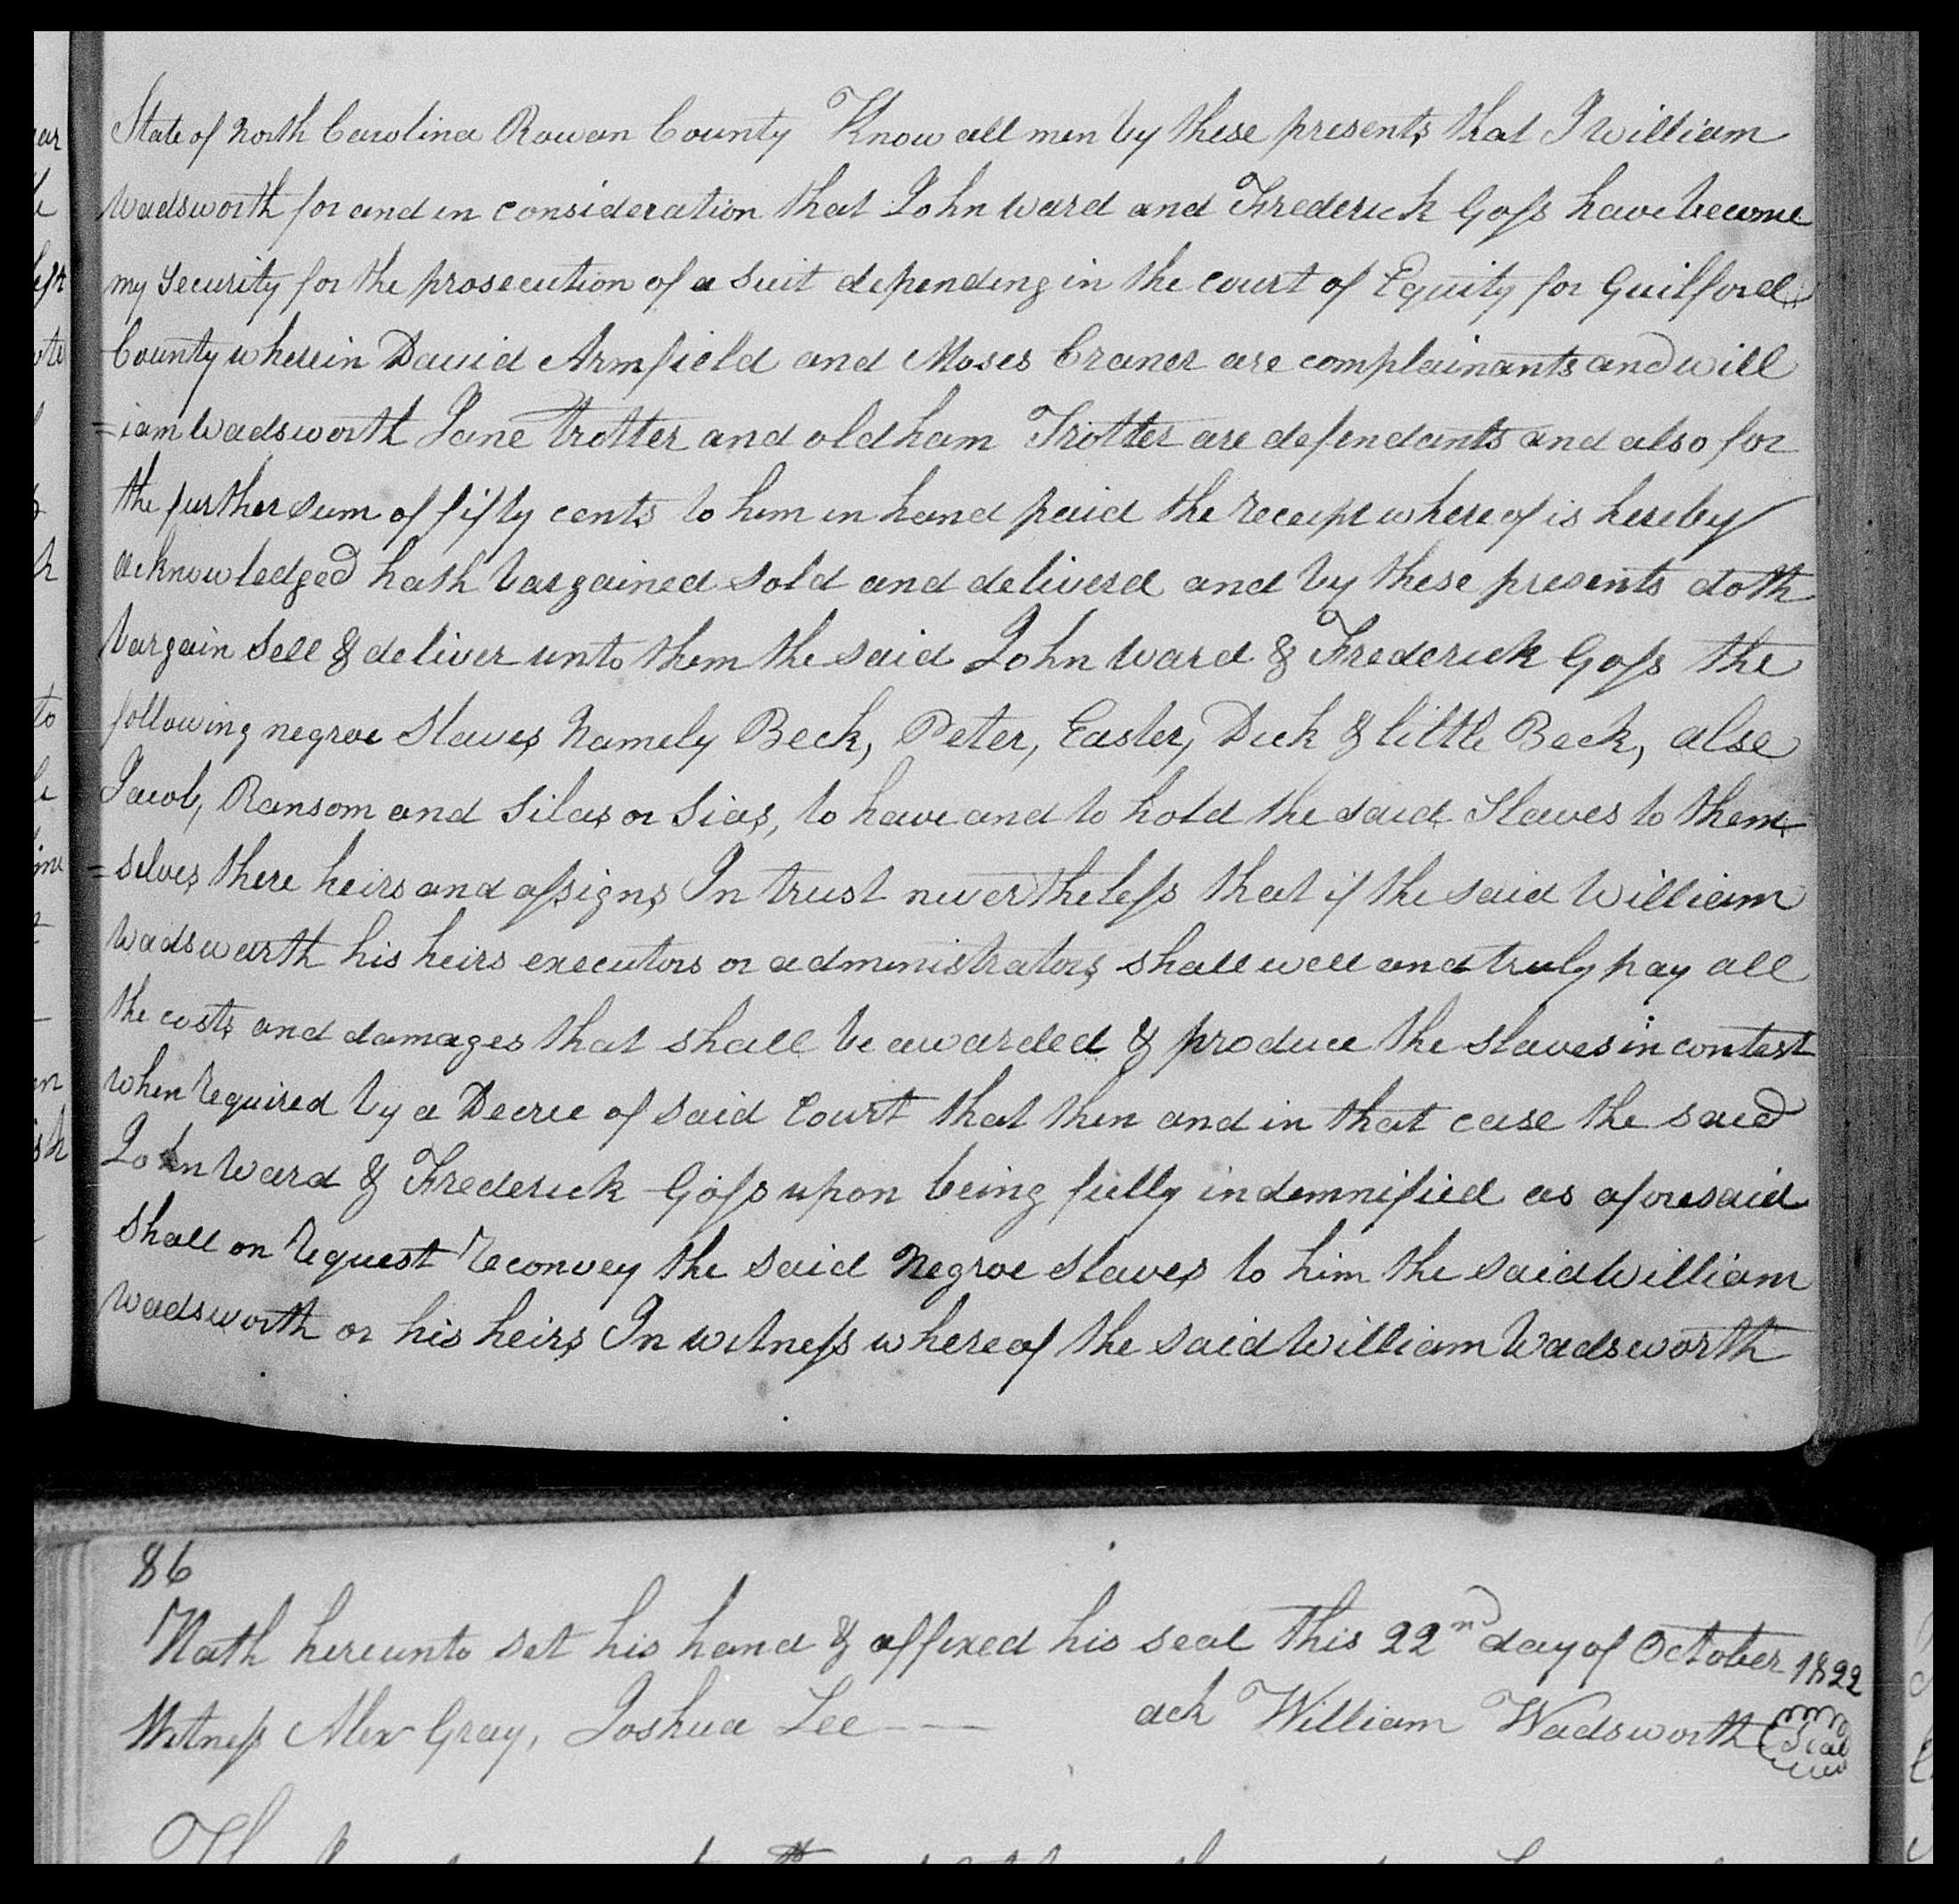 State of North Carolina Rowan County Know all men by these presents that I William
Wadsworth for and in consideration that John Ward and Frederick Goss have become
my Security for the prosecution of a Suit depending in the court of Equity for Guilford
County wherein David Armfield and Moses Craner are complainants and will
=iam Wadsworth Jane Trotter and oldham Trotter are defendants and also for
the further sum of fifty cents to him in hand paid the receipt whereof is hereby
acknowledged hath bargained sold and deliverd and by these presents doth
bargain Sell & deliver unto them the said John Ward & Frederick Goss the
following negroe Slaves Namely Beck, Peter, Easter, Dick & little Beck, also
Jacob, Ransom and Silas or Sias, to have and to hold the said Slaves to them
=selves there heirs and assigns In trust nevertheless that if the said William
Wadswarth his heirs executors or administrators shall well and truly pay all
the costs and damages that shall be awarded & produce the slaves in contest
when required by a Decree of said Court that then and in that case the said
John Ward & Frederick Goss upon being fully indemnified as aforesaid
shall on request reconvey the said Negroe slaves to him the said William
Wadsworth or his heirs In witness whereof the said William Wadsworth
86
Hath hereunto set his hand & affixed his seal this 22nd day of October 1822
Witness Alex Gray, Joshua Lee --- ack William Wadsworth Seal